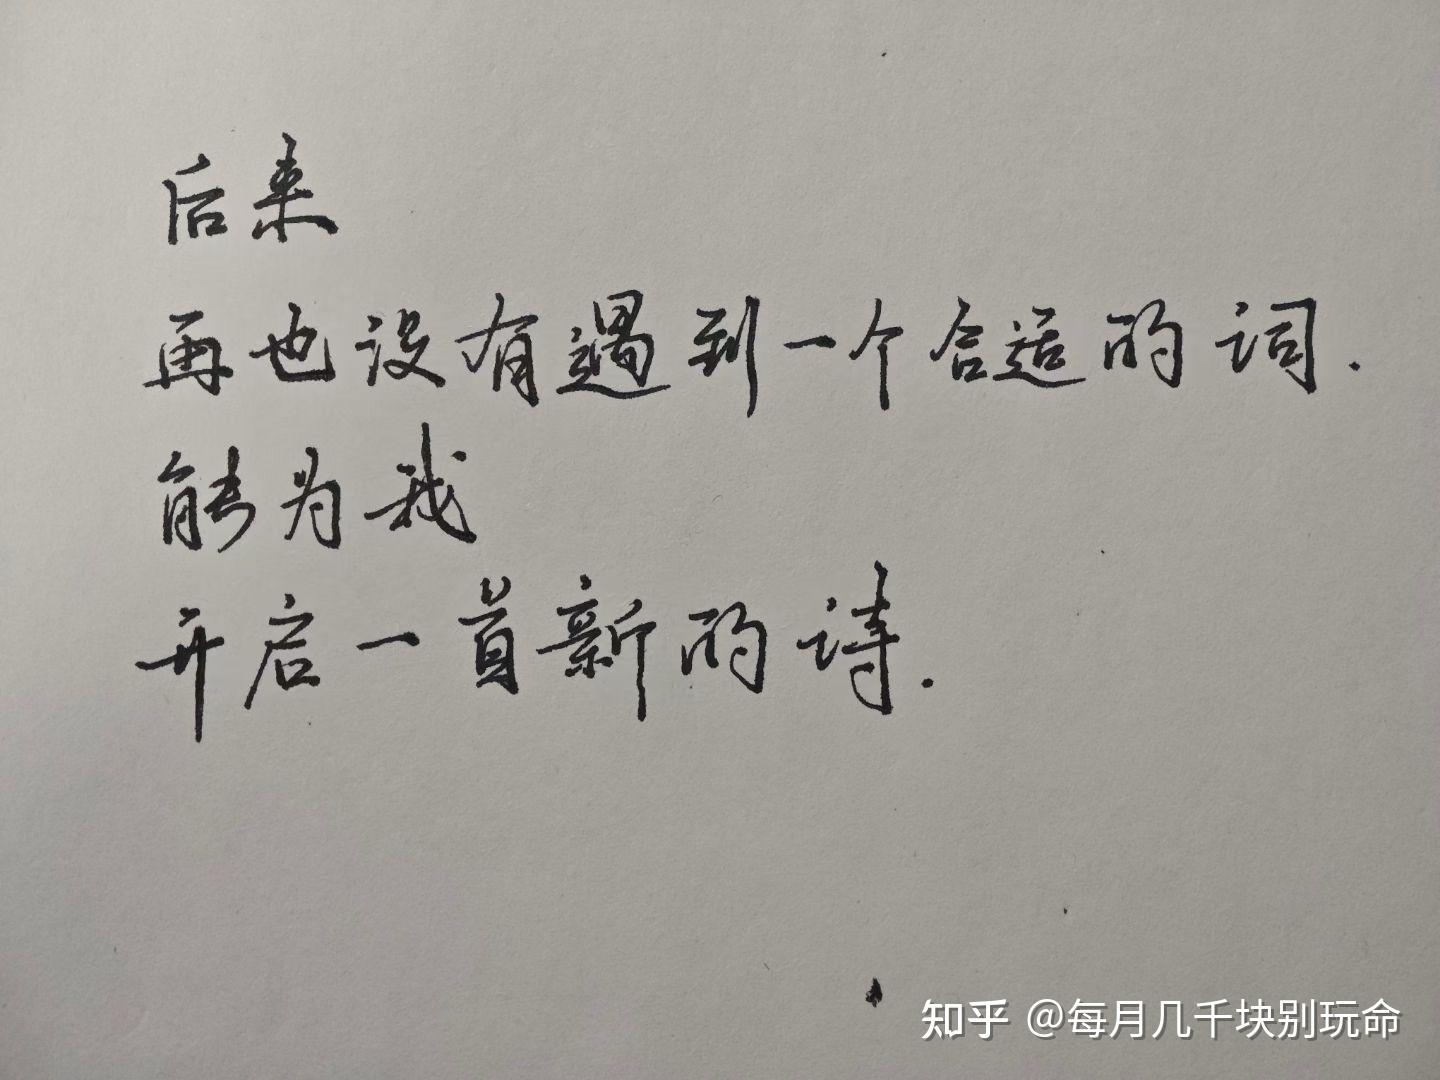 后来
再也没有遇到一个合适的词.
能为我
开启一首新的诗.
知乎 @每月几千块别玩命